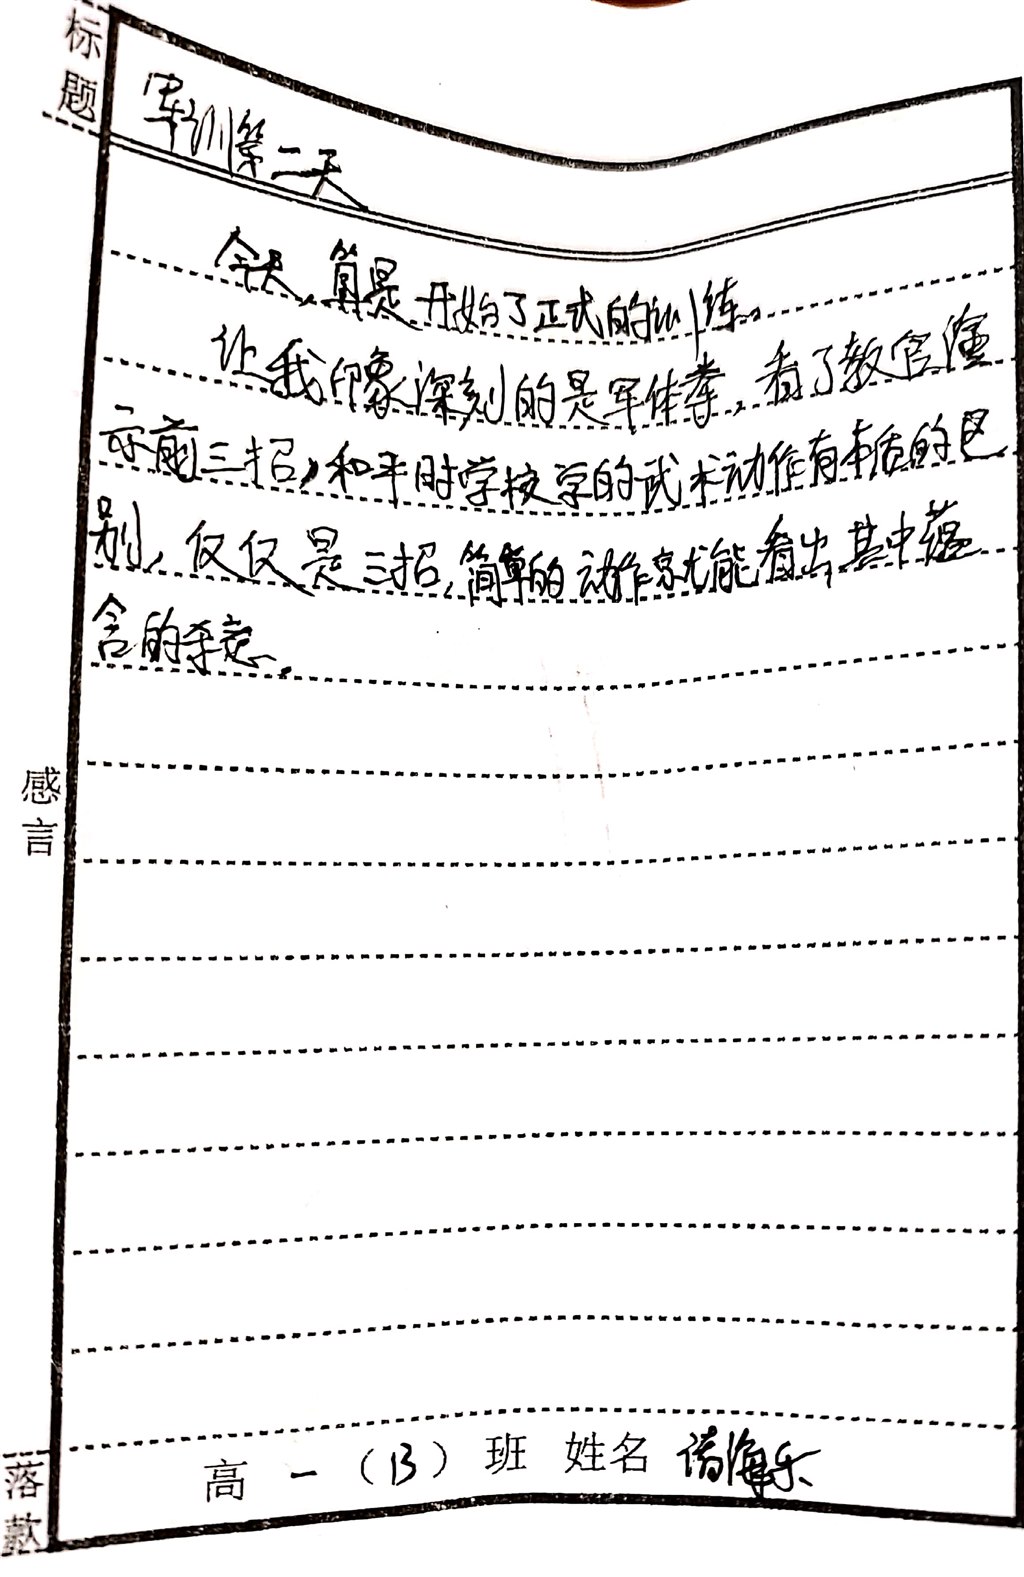 标题
军训第二天
今天,算是开始了正式的训练。
让我印象深刻的是军体拳,看了教官演
示前三招,和平时学校学的武术动作有本质的区
别,仅仅是三招,简单的动作就能看出其中蕴
含的杀意。
感言
落款
高一(13)班 姓名 诸海乐